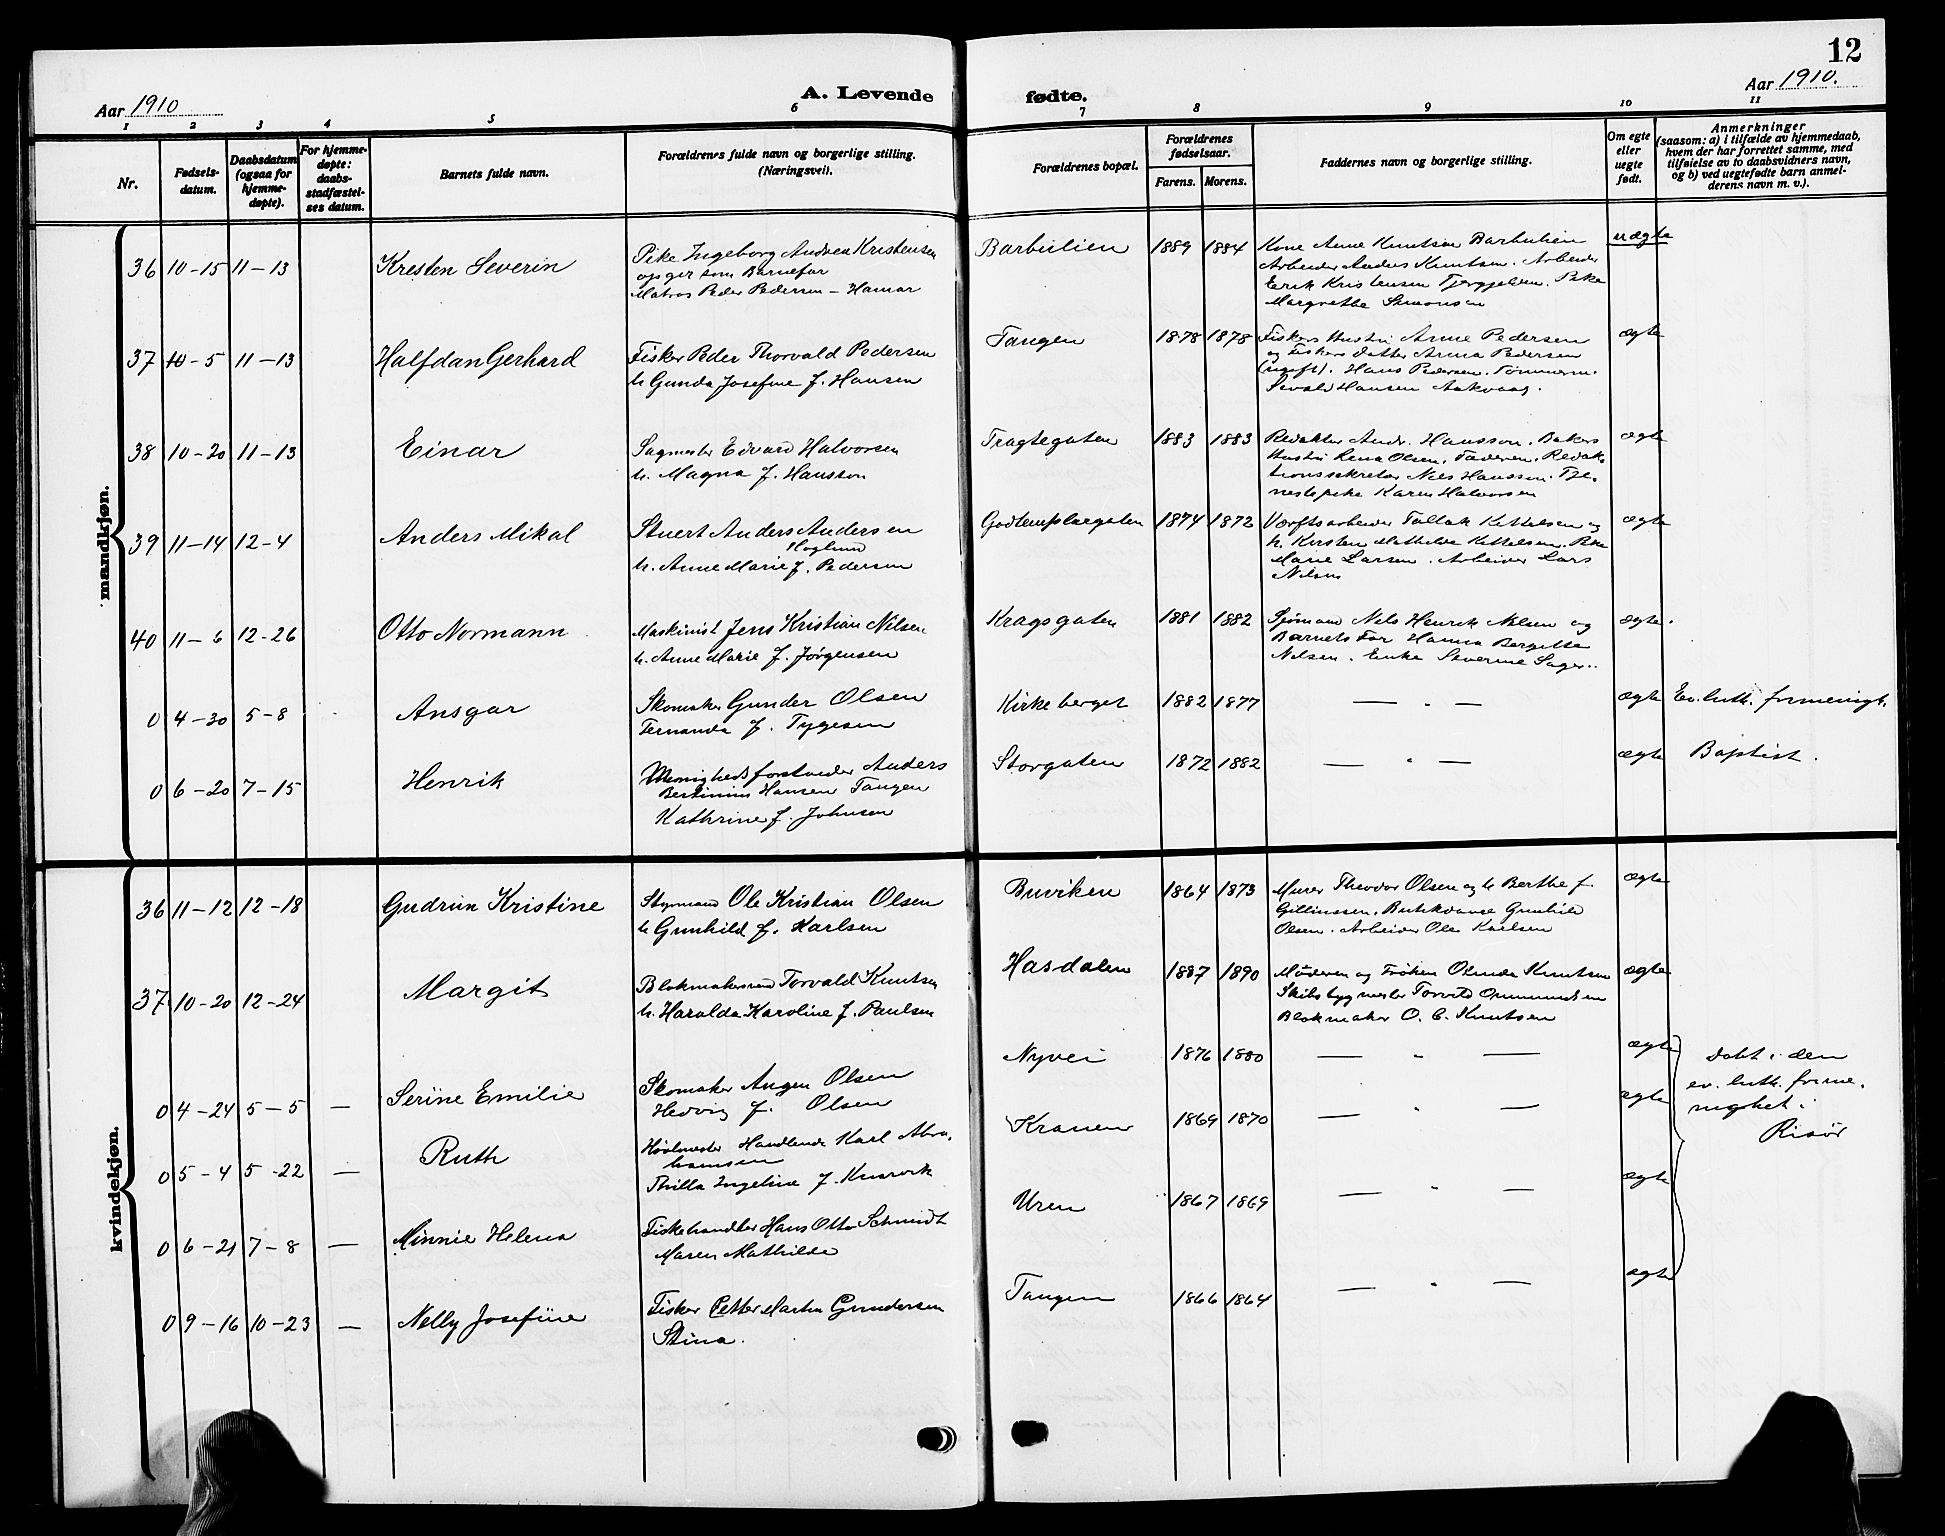 12
Aar 1910
A. Levende fødte.
Aar 1910.
1 2 3 4 5 6 7 8 9 10 11
Nr.
Fødsels-
datum.
Daabsdatum
(ogsaa for
hjemme-
døpte).
For hjemme-
døpte:
daabs-
stadfæstel-
ses datum.
Barnets fulde navn.
Forældrenes fulde navn og borgerlige stilling.
(Næringsvei).
Forældrenes bopæl.
Forældrenes
fødselsaar.
Farens. Morens.
Faddernes navn og borgerlige stilling.
Om egte
eller
uegte
født.
Anmerkninger
(saasom: a) i tilfælde av hjemmedaab,
hvem der har forrettet samme, med
tilføielse av to daabsvidners navn,
og b) ved uegtefødte barn anmel-
derens navn m. v.).
mandkjøn.
36 10-15 11-13 Kresten Severin
Pike Ingeborg Andrea Kristensen
opgir som Barnefar
Matros Peder Pedersen - Hamar
Barbulien 1889 1884
Kone Anne Knutsen Barbulien
Arbeider Anders Knutsen. Arbeider
Erik Kristensen Pike
Margrethe Simonsen
uægte
37 10-5 11-13 Halfdan Gerhard
Fisker Peder Thorvald Pedersen
h. Gunda Josefine f. Hansen
Tangen 1878 1878
Fiskers Hustru Anne Pedersen
og Fiskers Datter Anna Pedersen
(ugift). Hans Pedersen. Tømmerm.
Sevald Hansen Aakvaag.
ægte
38 10-20 11-13 Einar
Sagmester Edvard Halvorsen
h. Magna f. Hansson
Tragtegaten 1883 1883
Redaktør Andr. Hansson. Bakers
Hustru Lena Olsen. Faderen. Redak-
tionssekretær Nils Hansson. Tje-
nestepike Karen Halvorsen
ægte
39 11-14 12-4 Anders Mikal
Stuert Anders Andersen
Hoglund
h. Anne Marie f. Pedersen
Godtemplargaten 1874 1872
Værftsarbeider Tallak Kettelsen og
h. Kirsten Mathilde Kettelsen. Pike
Marie Larsen. Arbeider Lars
Nilsen
ægte
40 11-6 12-26 Otto Normann
Maskinist Jens Kristian Nilsen
h. Anne Marie f. Jørgensen
Kragsgaten 1881 1882
Sjømand Nils Henrik Nilsen og
Barnets Far Hanna Bergitte
Nilsen. Enke Severine
ægte.
0 4-30 5-8 Ansgar
Skomaker Gunder Olsen
Fernanda f. Tygesen
Kirkeberget 1882 1877
— " —
ægte Ev. luth. frimenigt.
0 6-20 7-15 Henrik
Menighedsforstander Anders
Bertinius Hansen Tangen
Kathrine f. Johnsen
Storgaten 1872 1882
— " —
ægte Baptist.
kvindekjøn.
36 11-12 12-18 Gudrun Kristine
Styrmand Ole Kristian Olsen
h Gunhild f. Karlsen
Buviken 1864 1873
Murer Theodor Olsen og h Berthe f.
Gunhild
Olsen. Arbeider Ole Karlsen
ægte
37 10-20 12-24 Margit
Blokmakersvend Torvald Knutsen
h. Haralda Karoline f. Paulsen
Hasdalen 1887 1890
Moderen og Frøken Olinda Knutsen
Skibsbygmester Torvald Ommundsen
Blokmaker O. C. Knutsen
ægte
0 4-24 5-5 — Serine Emilie
Skomaker Angen Olsen
Hedvig f. Olsen
Nyvei 1876 1880
— " —
ægte
Døbt i den
ev. luth. frime-
nighet i
Risør
0 5-4 5-22 — Ruth
Handlende Karl Abra-
hamsen
Thilla Ingeline f.
Kranen 1869 1870
— " —
ægte
0 6-21 7-8 — Minnie Helena
Fiskehandler Hans Otto Schmidt
Maren Mathilde
Uren 1867 1869
— " —
ægte
0 9-16 10-23 — Nelly Josefine
Fisker Petter Martin Gundersen
Stina.
Tangen 1866 1864
— " —
ægte